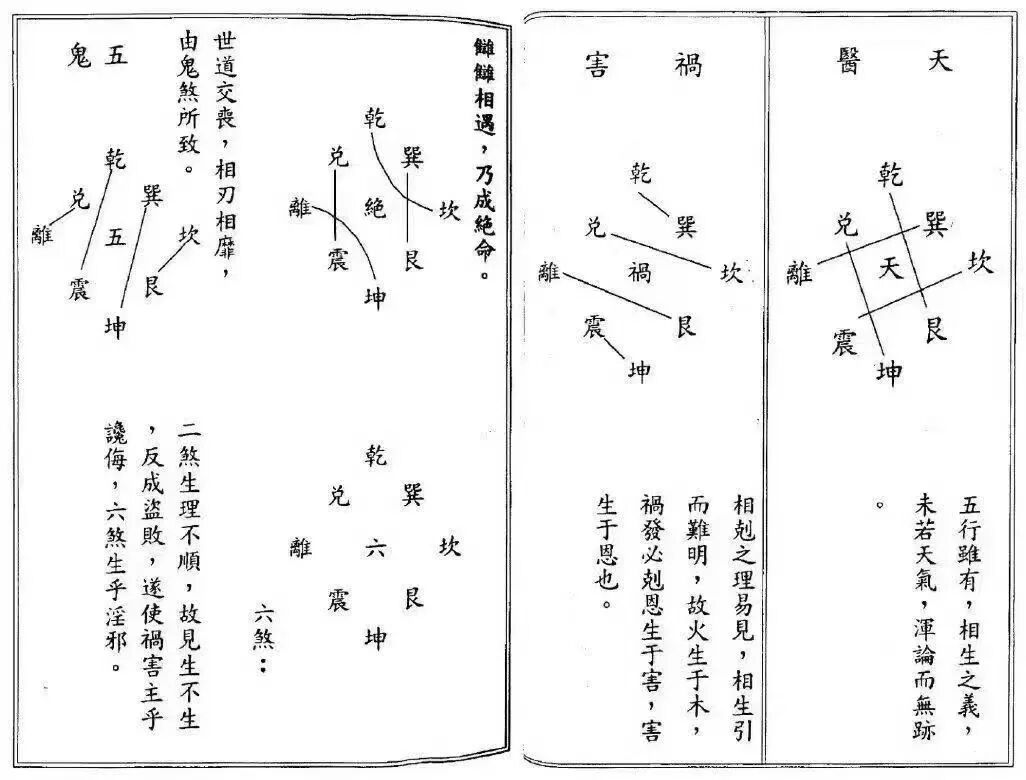 天醫
乾
兑 巽
離 天 坎
震 艮
坤
五行雖有，相生之義，
未若天氣，渾論而無跡
。
禍害
乾
兑 巽
離 禍 坎
震 艮
坤
相剋之理易見，相生引
而難明，故火生于木，
禍發必剋恩生于害，害
生于恩也。
相遇，乃成絕命。
乾
兑 巽
離 絕 坎
震 艮
坤
乾
兑 巽
離 六 坎
震 艮
坤
六煞：
世道交喪，相刃相靡，
由鬼煞所致。
五鬼
乾
兑 巽
離 五 坎
震 艮
坤
二煞生理不順，故見生不生
，反成盜敗，遂使禍害主乎
讒侮，六煞生乎淫邪。